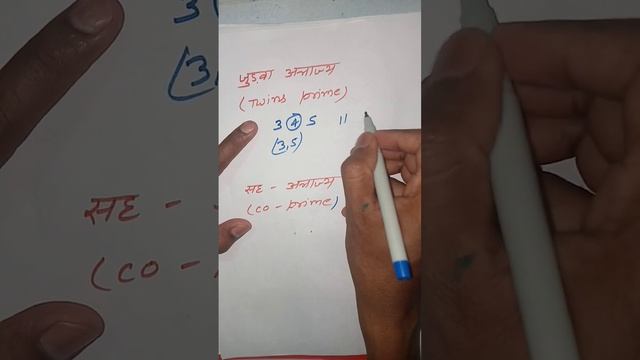 जुड़वा अभाज्य
(Twins prime)
3 4 5 11
(3,5)
सह - अभाज्य
(co - prime)